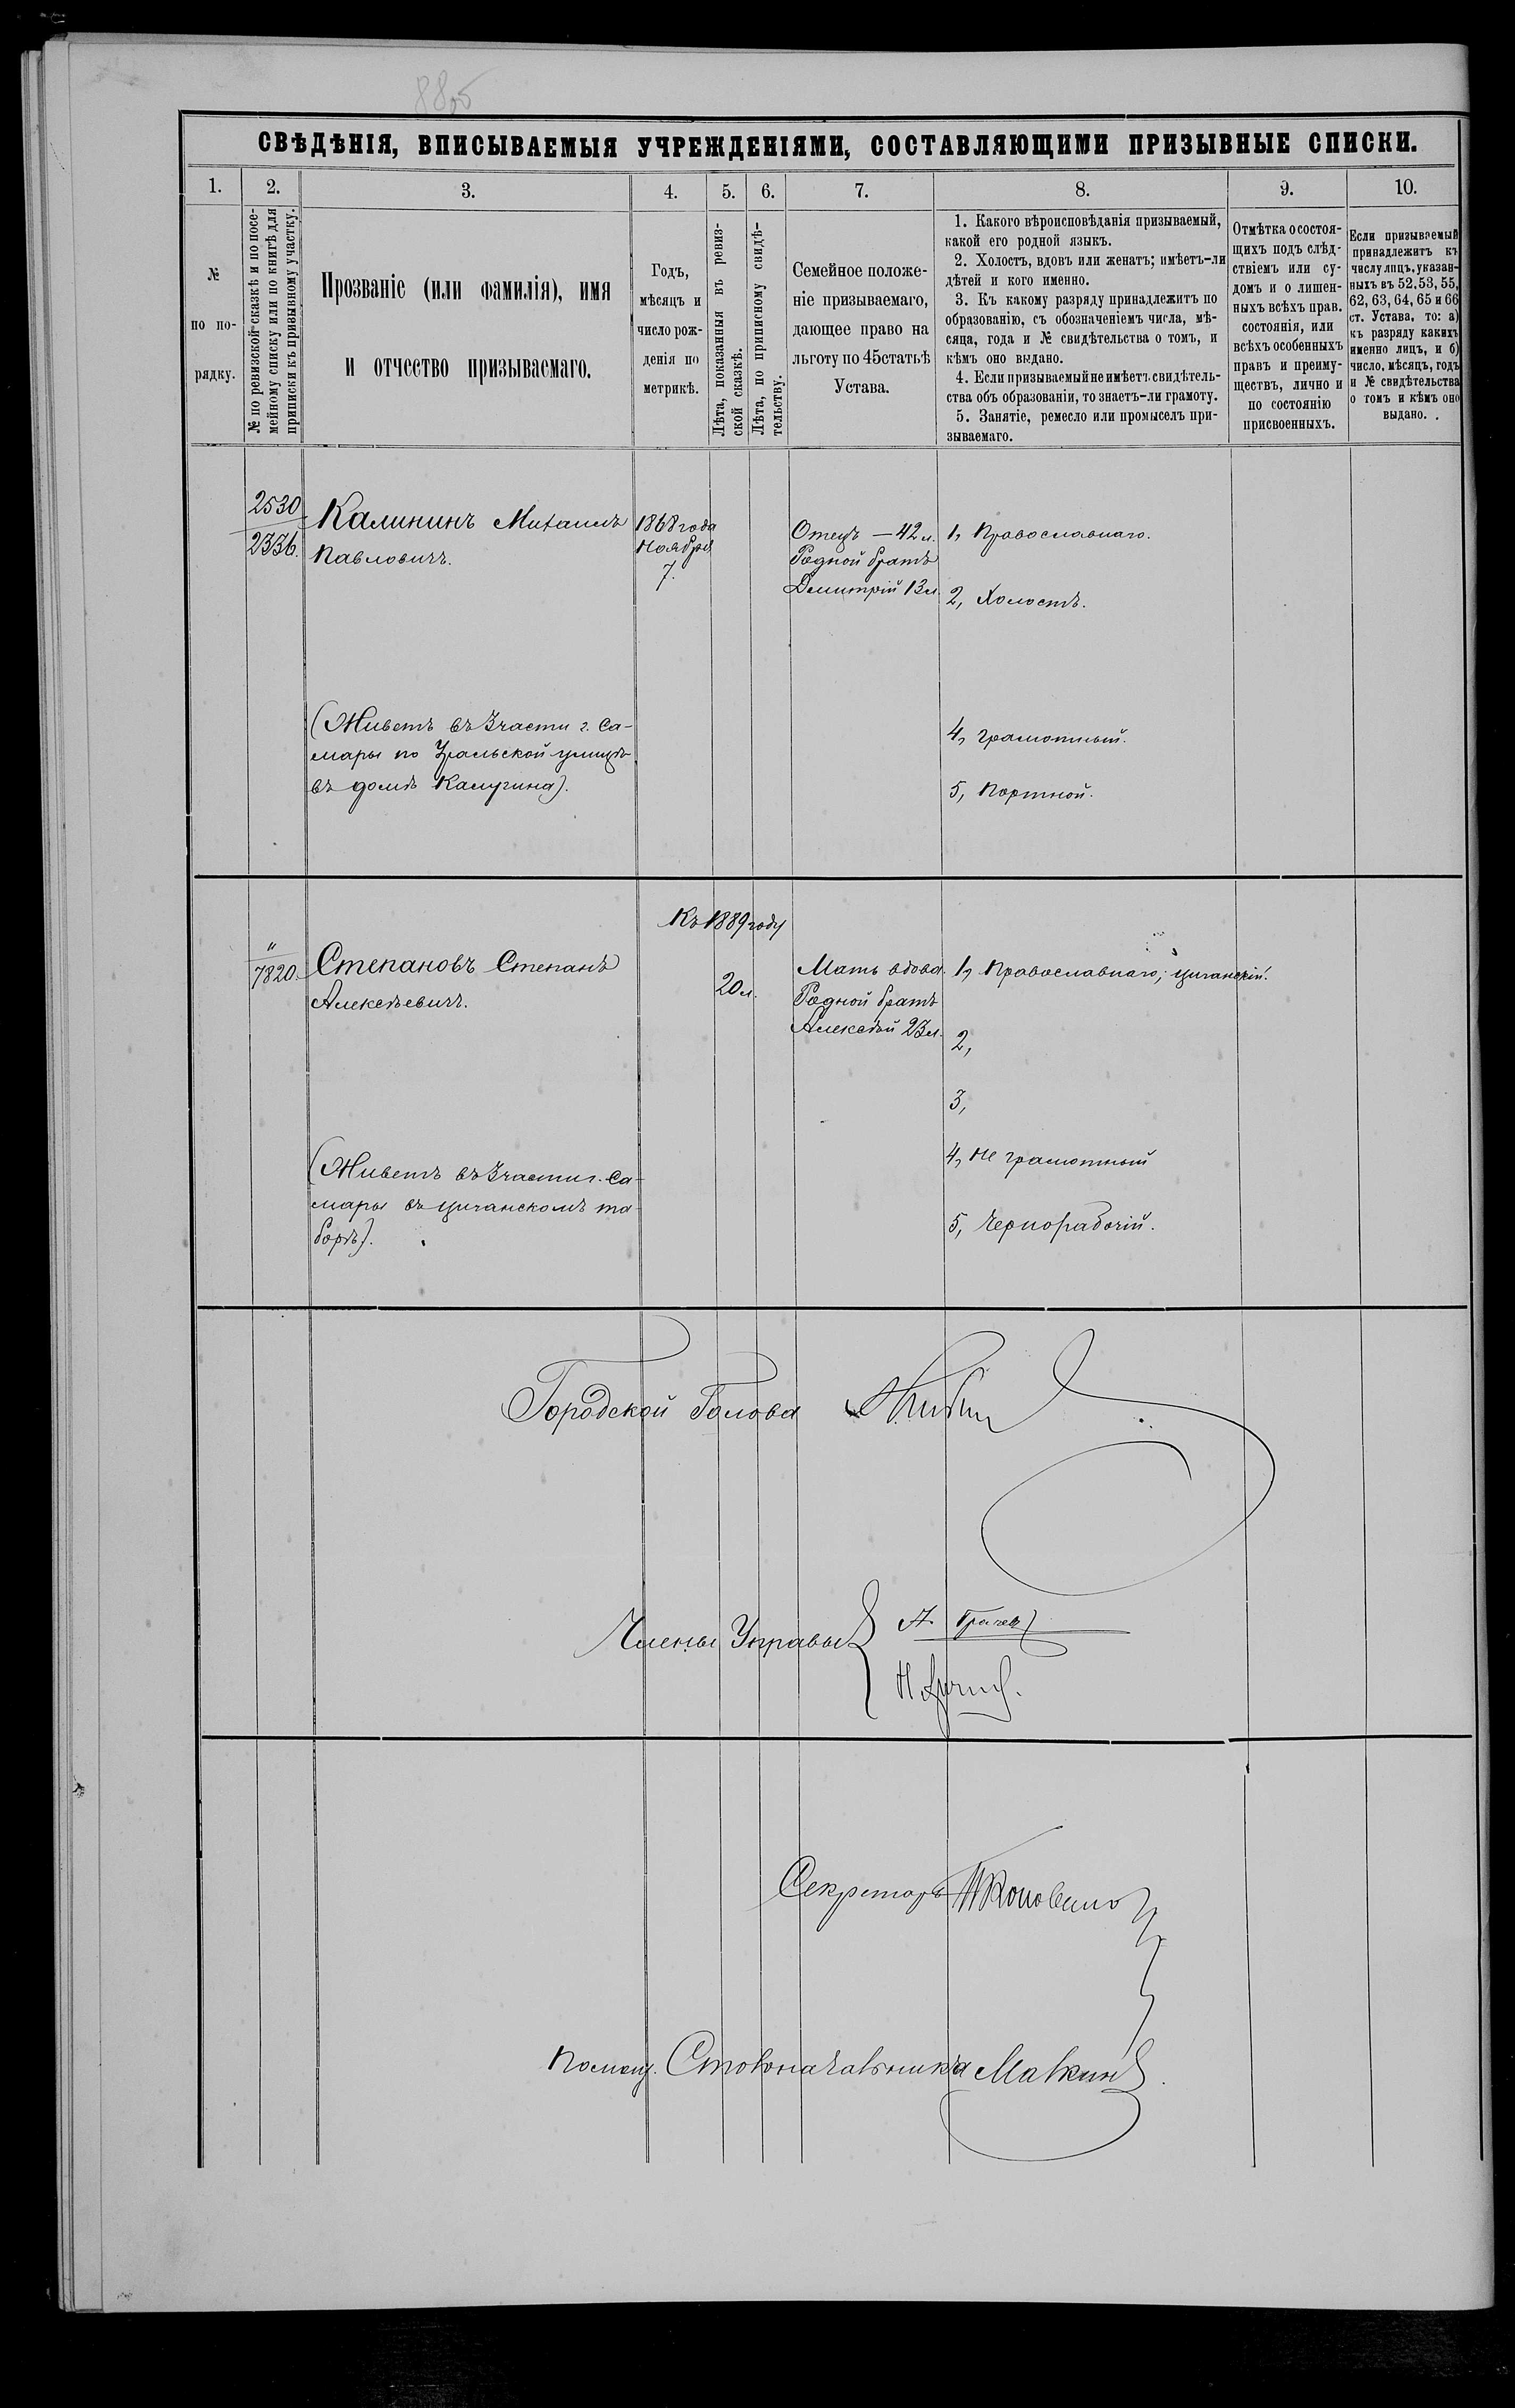 СВѢДѢНІЯ, ВПИСЫВАЕМЫЯ УЧРЕЖДЕНІЯМИ, СОСТАВЛЯЮЩИМИ ПРИЗЫВНЫЕ СПИСКИ.
1.
№
по по-
рядку.
2.
№ по ревизской сказкѣ и по посе-
мейному списку или по книгѣ для
приписки къ призывному участку.
3.
Прозваніе (или фамилія), имя
и отчество призываемаго.
4.
Годъ,
мѣсяцъ и
число рож-
денія по
метрикѣ.
5.
Лѣта, показанныя въ ревиз-
ской сказкѣ.
6.
Лѣта, по приписному свидѣ-
тельству.
7.
Семейное положе-
ніе призываемаго,
дающее право на
льготу по 45 статьѣ
Устава.
8.
1. Какого вѣроисповѣданія призываемый,
какой его родной языкъ.
2. Холостъ, вдовъ или женатъ; имѣетъ-ли
дѣтей и кого именно.
3. Къ какому разряду принадлежитъ по
образованію, съ обозначеніемъ числа, мѣ-
сяца, года и № свидѣтельства о томъ, и
кѣмъ оно выдано.
4. Если призываемый не имѣетъ свидѣтель-
ства объ образованіи, то знаетъ-ли грамоту.
5. Занятіе, ремесло или промыселъ при-
зываемаго.
9.
Отмѣтка о состоя-
щихъ подъ слѣд-
ствіемъ или су-
домъ и о лишен-
ныхъ всѣхъ прав.
состоянія, или
всѣхъ особенныхъ
правъ и преиму-
ществъ, лично и
по состоянію
присвоенныхъ.
10.
Если призываемый
принадлежитъ къ
числу лицъ, указан-
ныхъ въ 52, 53, 55,
62, 63, 64, 65 и 66
ст. Устава, то: а)
къ разряду какихъ
именно лицъ, и б)
число, мѣсяцъ, годъ
и № свидѣтельства
о томъ и кѣмъ оно
выдано.
2530
2336.
Калининъ Михаилъ
Павловичъ.
(Живетъ въ 3 части г. Са-
мары по Уральской улицѣ
въ домѣ Калугина).
1868 года
Ноября
7.
Отецъ — 42 л.
Родной братъ
Димитрій 13 л.
1, Православнаго.
2, Холостъ.
4, грамотный.
5, Портной.
Къ 1889 году
"
7820.
Степановъ Степанъ
Алексѣевичъ.
(Живетъ въ 3 части г. Са-
мары въ цыганскомъ та-
борѣ).
20 л.
Мать вдова.
Родной братъ
Алексѣй 23 л.
1, Православнаго; цыганскій.
2,
3,
4, Не грамотный
5, Чернорабочій.
Городской Голова
Члены Управы
А.
Секретарь
Помощ. Столоначальника Малкинъ